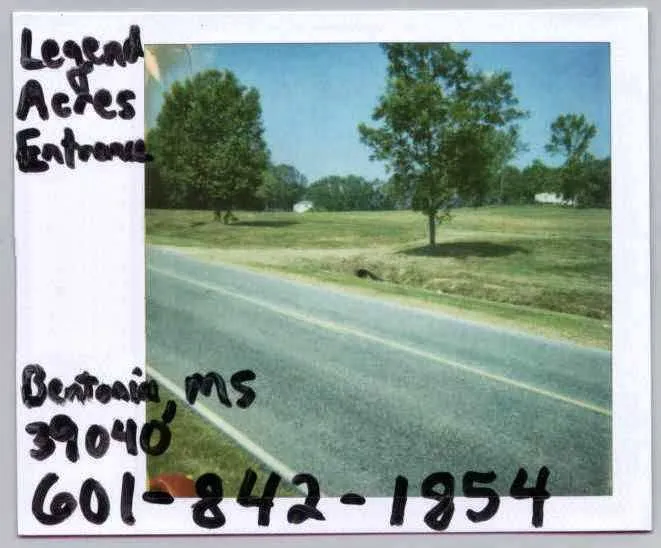 Legend
Acres
Entrance
Bentonia, MS
39040
601-842-1854